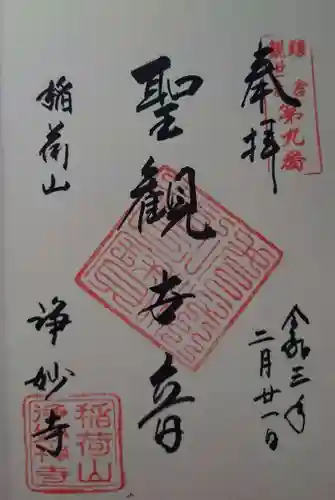 奉拝
鎌倉
観世
第九番
令和三年
二月廿一日
聖観世音
稲荷山
浄妙寺
稲荷山
浄妙寺